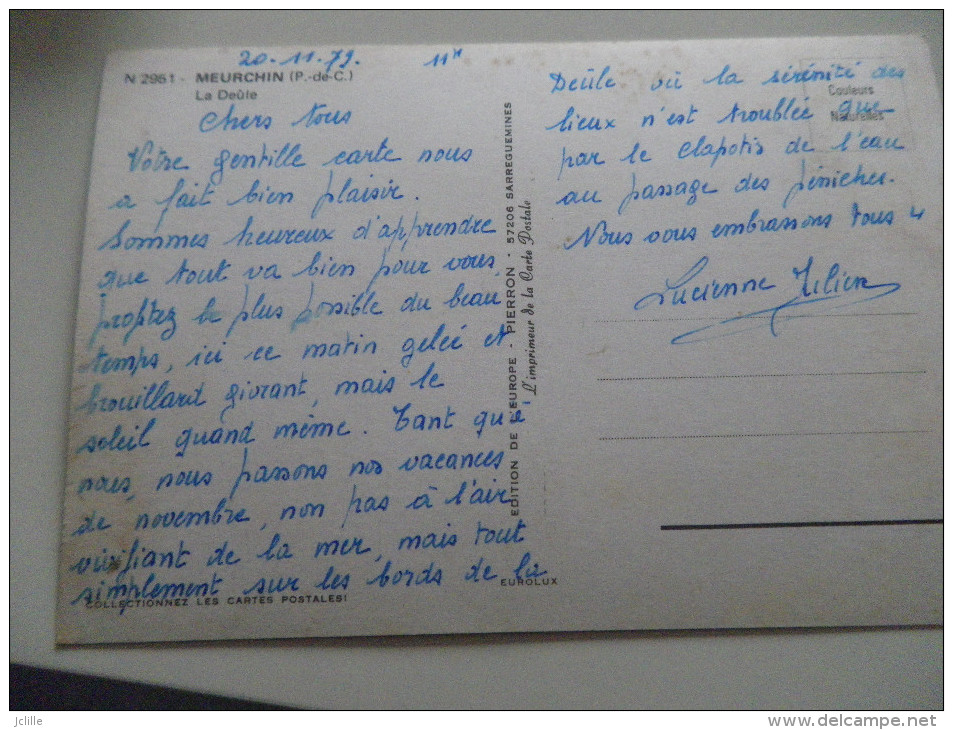 20.11.79. 11H
N 2951 - MEURCHIN (P.-de-C.)
La Deûle
Chers tous
Votre gentille carte nous
a fait bien plaisir.
Sommes heureux d'apprendre
que tout va bien pour vous,
profitez le plus possible du beau
temps, ici ce matin gelée et
brouillard givrant, mais le
soleil quand même. Tant qu'à
nous, nous passons nos vacances
de novembre, non pas à l'air
vivifiant de la mer, mais tout
simplement sur les bords de la
COLLECTIONNEZ LES CARTES POSTALES!
EUROLUX
EDITION DE L'EUROPE - PIERRON - 57206 SARREGUEMINES
L'imprimeur de la Carte Postale
Couleurs
Naturelles
Deûle où la sérénité des
lieux n'est troublée que
par le clapotis de l'eau
au passage des péniches.
Nous vous embrassons tous 4
Lucienne Julien
jclille
http://www.delcampe.net